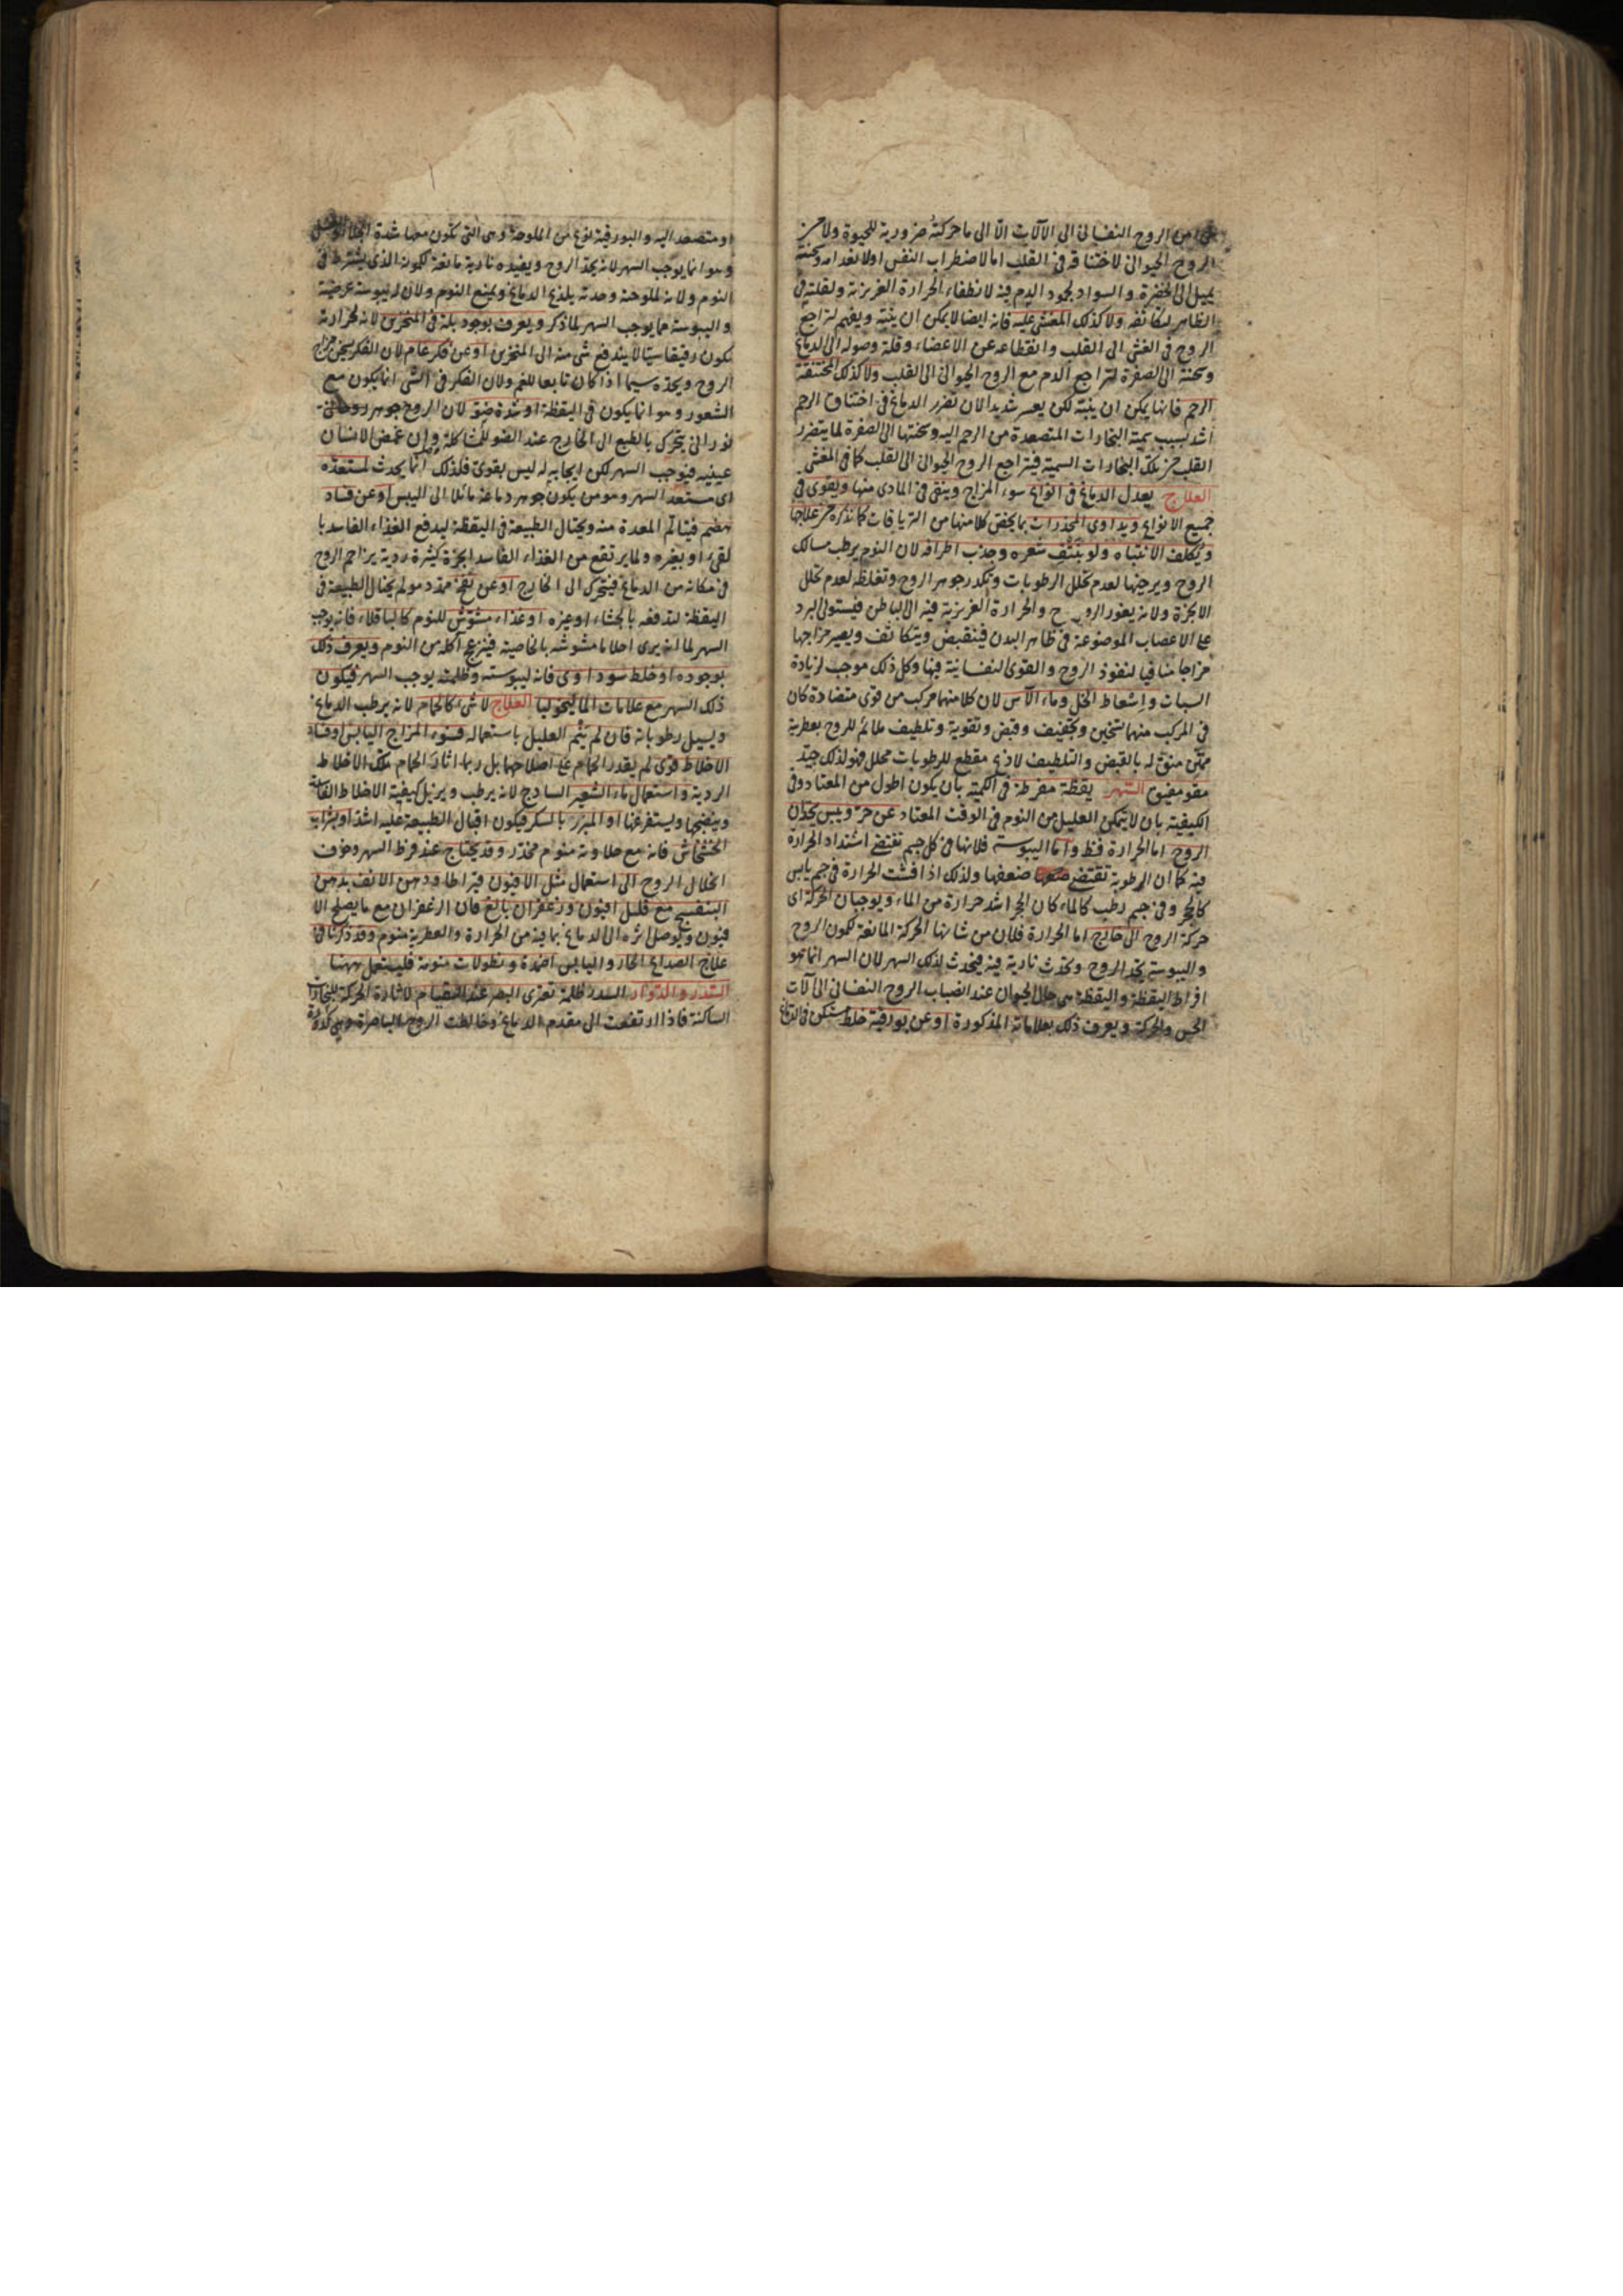 من الروح النفسانى الى الآلات الّا الى ما حركته ضرورية للحيوة ولا من
الروح الحيوانى لاختناقه فى القلب اما لاضطراب النفس او لانعدامه وسحنته
يميل الى الخضرة والسواد لجمود الدم فيه لانطفاء الحرارة الغريزية ولقلته فى
الظاهر لتكاثفه ولا كذلك المغشى عليه فانه ايضا لا يمكن ان ينبّه ويفهم لتراجع
الروح فى الغشى الى القلب وانقطاعه عن الاعضاء وقلة وصوله الى الدماغ
وسحنته الى الصفرة لتراجع الدم مع الروح الحيوانى الى القلب ولا كذلك المختنقة
الرحم فانها يمكن ان ينبّه لكن بعسر شديد لان تضرر الدماغ فى اختناق الرحم
اشد بسبب سمية البخارات المتصعدة من الرحم اليه وسحنتها الى الصفرة لما يتضرر
القلب من تلك البخارات السمية فيتراجع الروح الحيوانى الى القلب كما فى الغشى
العلاج يعدل الدماغ فى انواع سوء المزاج وينقى فى المادى منها ويقوى فى
جميع الانواع ويداوى المخدرات بما يخص كلا منها من الترياقات كما نذكره من علاجها
ويكلف الانتباه ولو بنتف شعره وجذب اطرافه لان النوم يرطب مسالك
الروح ويرخيها لعدم تحلل الرطوبات وتكدر جوهر الروح وتغلظه لعدم تحلل
الابخرة ولانه يغور الروح والحرارة الغريزية فيه الى الباطن فيستولى البرد
على الاعصاب الموضوعة فى ظاهر البدن فينقبض ويتكاثف ويصير مزاجها
مزاجا منافيا لنفوذ الروح والقوى النفسانية فيها وكل ذلك موجب لزيادة
السبات واسعاط الخل وماء الآس لان كلا منهما مركب من قوى متضادة كان
فى المركب منهما تسخين وتجفيف وقبض وتقوية وتلطيف ملائم للروح بعطرية
ممتن منوّ له بالقبض والتلطيف لاذع مقطع للرطوبات محلل فهو لذلك جيّد
مقو مفيق السهر يقظة مفرطة فى الكمية بان يكون اطول من المعتاد وفى
الكيفية بان لا يتمكن العليل من النوم فى الوقت المعتاد عن حرّ ويبس يحدّان
الروح اما الحرارة فظ واما اليبوسة فلانها فى كل جسم تقتضى اشتداد الحرارة
فيه كما ان الرطوبة تقتضى ضعفها ولذلك اذا افشت الحرارة فى جسم يابس
كالحجر وفى جسم رطب كالماء كان الحجر اشد حرارة من الماء ويوجبان الحركة اى
حركة الروح الى خارج اما الحرارة فلان من شانها الحركة المانعة لسكون الروح
واليبوسة يحدّ الروح وتحدث نارية فيه فيحدث لذلك السهر لان السهر انما هو
افراط اليقظة واليقظة هى حال الحيوان عند انصباب الروح النفسانى الى آلات
الحس والحركة ويعرف ذلك بعلاماته المذكورة او عن بورقية خلط مستكن فى الدماغ
او متصعد اليه والبورقية نوع من الملوحة وهى التى تكون معها شدة
وهو انما يوجب السهر لانه يحدّ الروح ويفيده نارية مانعة لسكونه الذى يشترط فى
النوم ولانه لملوحته وحدته يلذع الدماغ ويمنع النوم ولان له يبوسة عرضية
واليبوسة مما يوجب السهر لما ذكر ويعرف بوجود بلة فى المنخرين لانه لحرارته
يكون رقيقا سيّالا يندفع شى منه الى المنخرين او عن فكر عام لان الفكر يسخن مزاج
الروح ويحده سيما اذا كان تابعا للغم ولان الفكر فى الشى انما يكون مع
الشعور وهو انما يكون فى اليقظة او شدة ضوء لان الروح جوهر روحانى
نورانى يتحرك بالطبع الى الخارج عند الضوء للمشاكلة وان غمض الانسان
عينيه فيوجب السهر لكن ايجابه له ليس بقوى فلذلك انما يحدث لمستعدّه
اى مستعد السهر وهو من يكون جوهر دماغه مائلا الى اليبس او عن فساد
هضم فيتالم المعدة منه ويحتال الطبيعة فى اليقظة ليدفع الغذاء الفاسد با
لقىء او بغيره ولما يرتفع من الغذاء الفاسد ابخرة كثيرة ردية يزاحم الروح
فى مكانه من الدماغ فيتحرك الى الخارج او عن نفخ ممدد مولم يحتال الطبيعة فى
اليقظة لتدفعه بالجشاء او غيره او غذاء مشوّش للنوم كالباقلاء فانه يوجب
السهر لما انه يرى احلاما مشوشة بالخاصية فينزعج اكله من النوم ويعرف ذلك
بوجوده او خلط سوداوى فانه ليبوسته وظلمته يوجب السهر فيكون
ذلك السهر مع علامات الماليخوليا العلاج لا شى كالحمام لانه يرطب الدماغ
ويسيل رطوباته فان لم ينم العليل باستعماله فسوء المزاج اليابس او فساد
الاخلاط قوى لم يقدر الحمام على اصلاحهما بل ربما اثار الحمام تلك الاخلاط
الردية واستعمال ماء الشعير الساذج لانه يرطب ويزيل كيفية الاخلاط الفاسدة
وينضجها ويستفرغها او المبزر بالسكر فيكون اقبال الطبيعة عليه اشد او بشراب
الخشخاش فانه مع حلاوته منوم مخدّر وقد يحتاج عند فرط السهر وخوف
انحلال الروح الى استعمال مثل الافيون قيراطا ودهن الانف بدهن
البنفسج مع قليل افيون وزعفران بالغ فان الزعفران مع ما يصلح الا
فيون ويوصل اثره الى الدماغ بما فيه من الحرارة والعطرية منوم وقد ذكرنا فى
علاج الصداع الحار واليابس اضمدة ونطولات منومة فليستعمل ههنا
السدر والدوار السدر ظلمة تعترى البصر عند القيام لاثارة الحركة للبخارات
الساكنة فاذا ارتفعت الى مقدم الدماغ وخالطت الروح الباصرة وهى كدرة